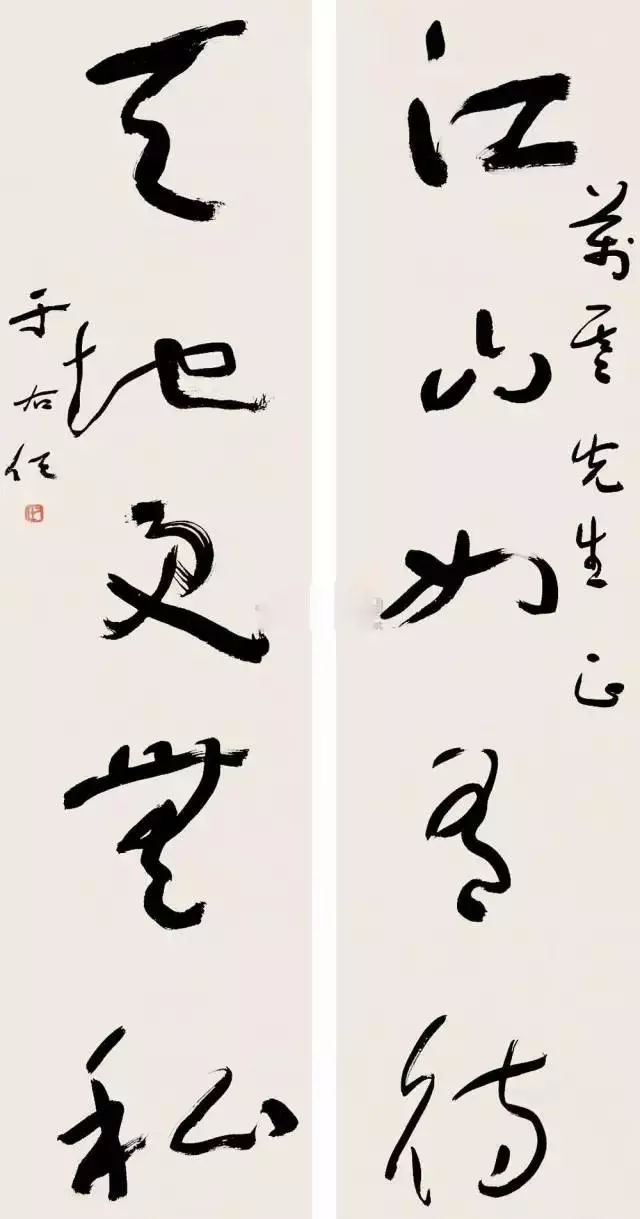 萬雲先生正
江山如有待
天地更無私
于右任